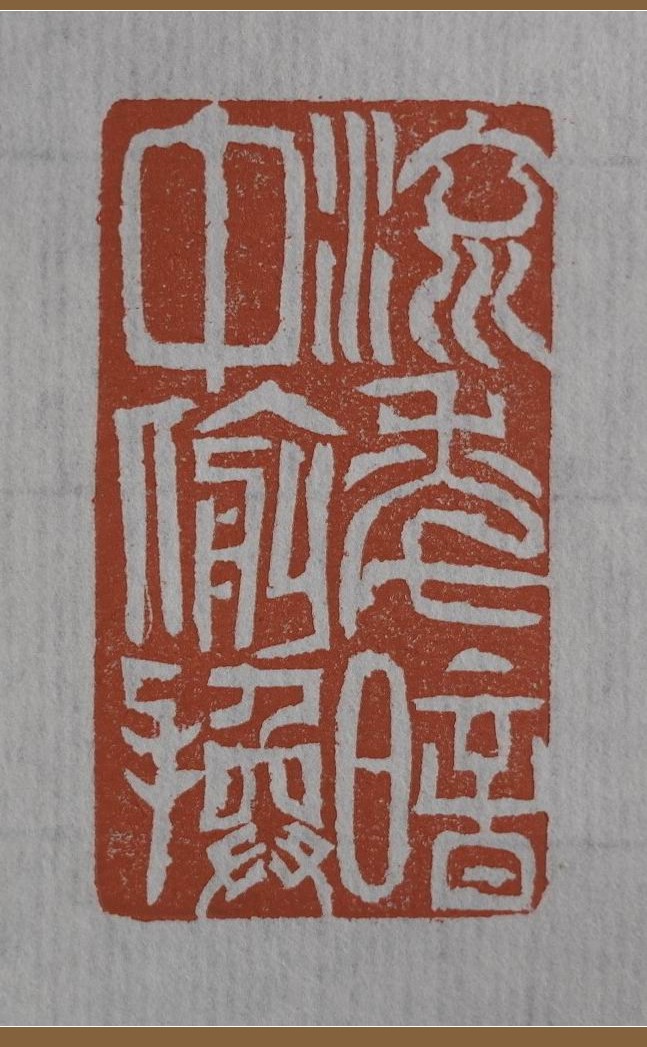 流年暗
中偷換